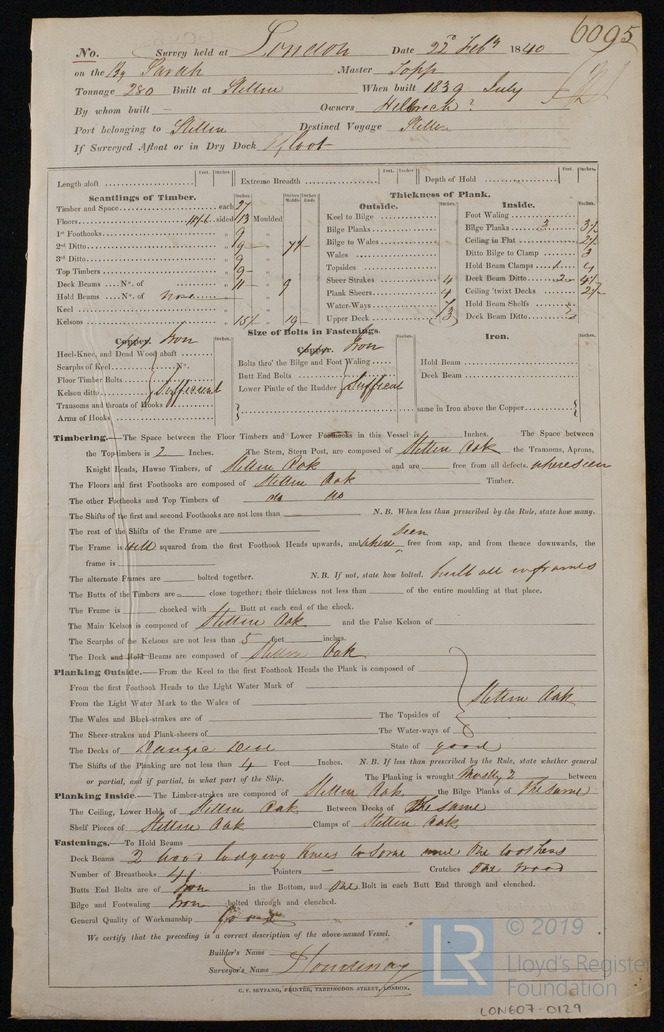 6095
No. Survey held at London Date 22d Feby 1840
on the Bg Sarah Master Topp
Tonnage 280 Built at Stettin When built 1839 July
By whom built — Owners Hellreich?
Port belonging to Stettin Destined Voyage Stettin
If Surveyed Afloat or in Dry Dock Afloat
Feet. Inches. Feet. Inches. Feet. Inches.
Length aloft Extreme Breadth Depth of Hold
Scantlings of Timber.
Timber and Space each 27
Floors sided 13 Moulded
1st Foothooks 9
2nd Ditto 9 7½
3rd Ditto 9
Top Timbers 9
Deck Beams No. of 11 9
Hold Beams No. of none
Keel
Kelsons 15½ 19
Thickness of Plank.
Outside.
Keel to Bilge
Bilge Planks
Bilge to Wales
Wales
Topsides
Sheer Strakes 4
Plank Sheers 4
Water-Ways
Upper Deck 3
Inside.
Foot Waling
Bilge Planks 3 3½
Ceiling in Flat 2½
Ditto Bilge to Clamp 3
Hold Beam Clamps 1 4
Deck Beam Ditto 2 4½
Ceiling 'twixt Decks 2½
Hold Beam Shelfs
Deck Beam Ditto
Size of Bolts in Fastenings.
Copper. Iron
Heel-Knee, and Dead Wood abaft
Scarphs of Keel No.
Floor Timber Bolts
Kelson ditto Sufficient
Transoms and throats of Hooks
Arms of Hooks
Copper. Iron
Bolts thro' the Bilge and Foot Waling
Butt End Bolts
Lower Pintle of the Rudder Sufficient
Iron.
Hold Beam
Deck Beam
same in Iron above the Copper
Timbering.—The Space between the Floor Timbers and Lower Foothooks in this Vessel is Inches. The Space between
the Top-timbers is 2 Inches. The Stem, Stern Post, are composed of Stettin Oak the Transoms, Aprons,
Knight Heads, Hawse Timbers, of Stettin Oak and are free from all defects. where seen
The Floors and first Foothooks are composed of Stettin Oak Timber.
The other Foothooks and Top Timbers of do do
The Shifts of the first and second Foothooks are not less than N. B. When less than prescribed by the Rule, state how many.
The rest of the Shifts of the Frame are
The Frame is well squared from the first Foothook Heads upwards, and where seen free from sap, and from thence downwards, the
frame is
The alternate Frames are bolted together. N. B. If not, state how bolted. built all in frames
The Butts of the Timbers are close together; their thickness not less than of the entire moulding at that place.
The Frame is chocked with Butt at each end of the chock.
The Main Kelson is composed of Stettin Oak and the False Kelson of
The Scarphs of the Kelsons are not less than 5 feet inches.
The Deck and Hold Beams are composed of Stettin Oak
Planking Outside.—From the Keel to the first Foothook Heads the Plank is composed of
From the first Foothook Heads to the Light Water Mark of
From the Light Water Mark to the Wales of Stettin Oak
The Wales and Black-strakes are of The Topsides of
The Sheer-strakes and Plank-sheers of The Water-ways of
The Decks of Danzic Deal State of good
The Shifts of the Planking are not less than 4 Feet Inches. N. B. If less than prescribed by the Rule, state whether general
or partial, and if partial, in what part of the Ship. The Planking is wrought Mostly 2 between
Planking Inside.—The Limber-strakes are composed of Stettin Oak the Bilge Planks of The same
The Ceiling, Lower Hold of Stettin Oak Between Decks of The same
Shelf Pieces of Stettin Oak Clamps of Stettin Oak
Fastenings.—To Hold Beams
Deck Beams 2 wood lodging knees to some and one to others
Number of Breasthooks 4 Pointers — Crutches One wood
Butts End Bolts are of Iron in the Bottom, and One Bolt in each Butt End through and clenched.
Bilge and Footwaling Iron bolted through and clenched.
General Quality of Workmanship Good
We certify that the preceding is a correct description of the above-named Vessel.
Builder's Name
Surveyor's Name
C. F. SEYFANG, PRINTER, FARRINGDON STREET, LONDON.
LR
© 2019
Lloyd's Register
Foundation
LON607-0129